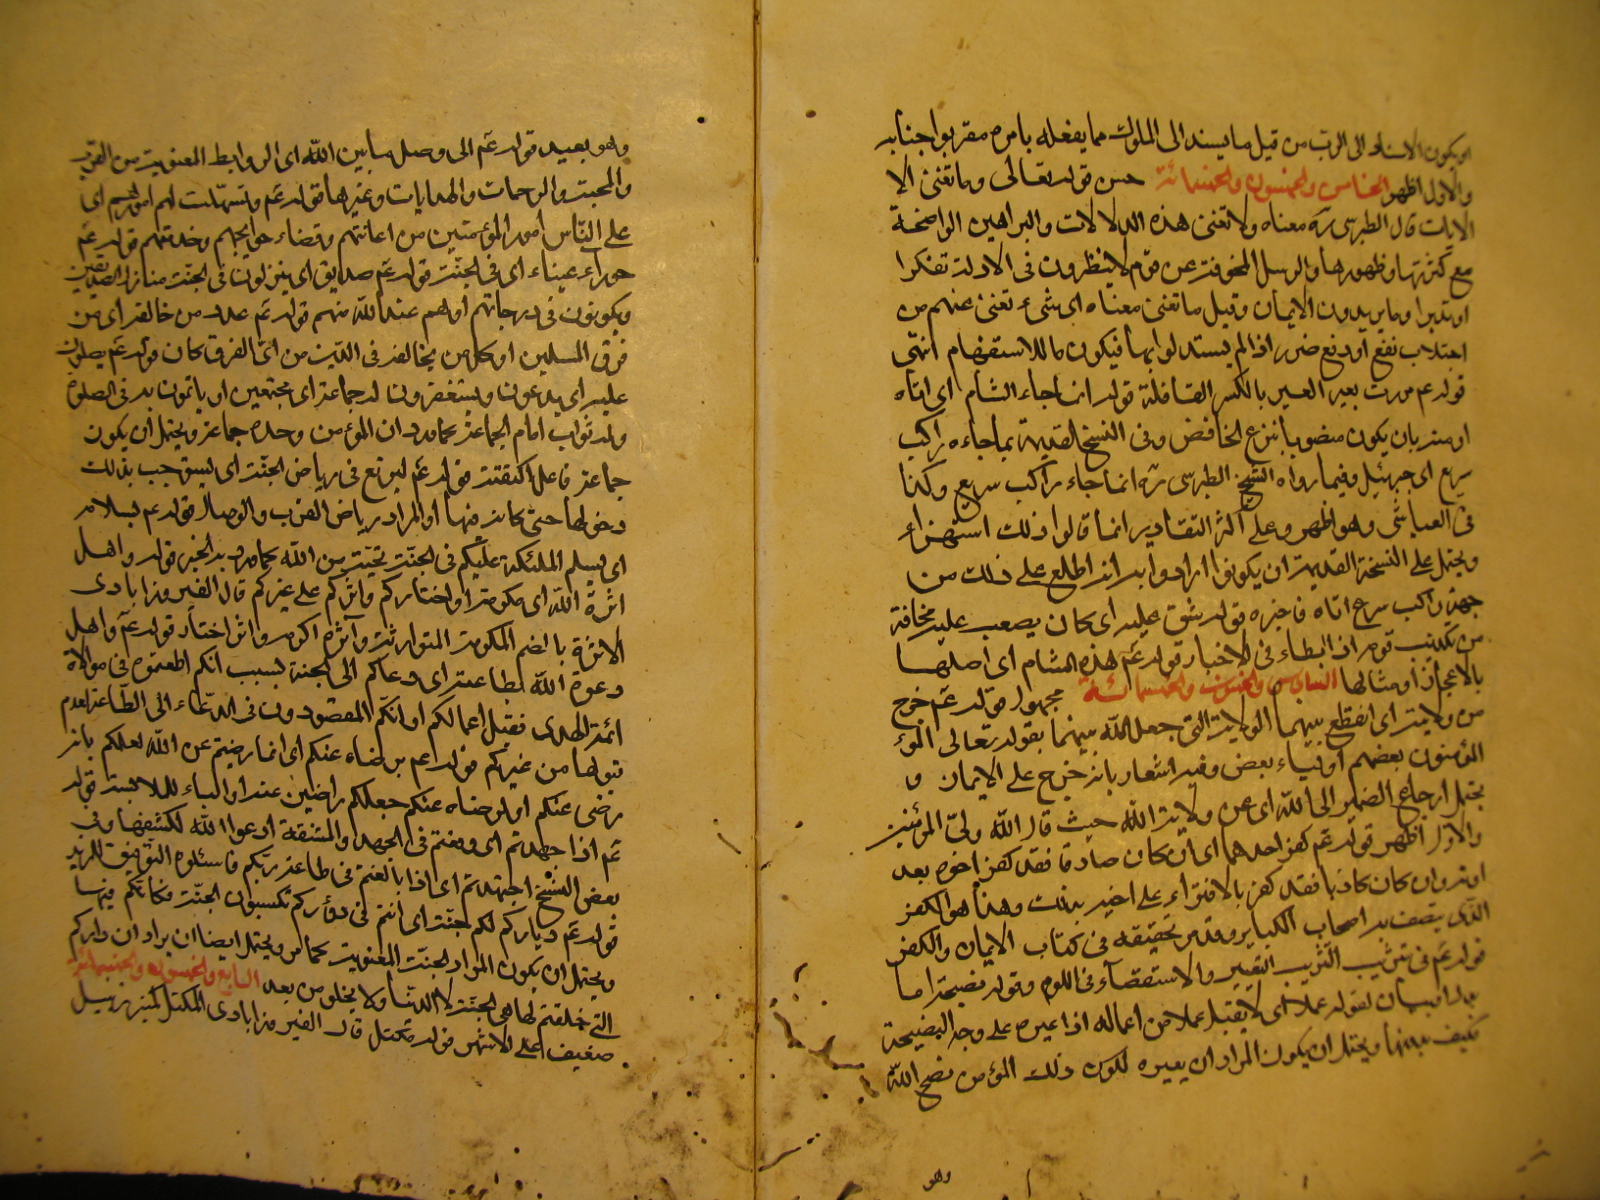 او يكون الاسناد الى الرب من قبيل ما يسند الى الملوك مما يفعله بامره مقربوا جنابه
والاول اظهر الخامس والخمسون والخمسمائة حسن قوله تعالى وما تغنى الا
الايات قال الطبرسى ره معناه ولا تغنى هذه الدلالات والبراهين الواضحة
مع كثرتها وظهورها والرسل المخوفة عن قوم لا ينظرون فى الادلة تفكرا
او تدبرا وما يريدون الايمان وقيل ما تغنى معناه اى شىء تغنى عنهم من
اجتلاب نفع او دفع ضرر اذا لم يستدلوا بها فيكون ما للاستفهام انتهى
قوله عم مرت بعير العير بالكسر القافلة قوله انما جاء الشام اى اتاه
او منه بان يكون منصوبا بنزع الخافض وفى النسخ القديمة بما جاءه راكب
سريع اى جبرئيل وفيما رواه الشيخ الطبرسى ره انما جاء راكب سريع وكذا
فى العياشى وهو اظهر وعلى اكثر التقادير انما قالوا ذلك استهزاء
ويحتمل على النسخة القديمة ان يكونوا ارادوا به انه اطلع على ذلك من
جهة راكب سريع اتاه فاخبره قوله يشق عليه اى كان يصعب عليه مخافة
من تكذيب قومه اذ ابطاء فى الاخبار قوله عم هذه الشام اى اصلها
بالاعجاز او مثالها السادس والخمسون والخمسمائة مجهول قوله عم خرج
من ولايته اى انقطع بينهما الولاية التى جعل الله بينهما بقوله تعالى المؤ
المؤمنون بعضهم اولياء بعض وفيه اشعار بانه خرج على الايمان و
يحتمل ارجاع الضمير الى الله اى عن ولاية الله حيث قال الله ولى المؤمنين
والاول اظهر قوله عم كفر احدهما اى ان كان صادقا فقد كفر اخوه بعد
او منه وان كان كاذبا فقد كفر بالافتراء على اخيه بذلك وهذا هو الكفر
الذى يتصف به اصحاب الكبائر وقد مر تحقيقه فى كتاب الايمان والكفر
قوله عم فى تثريب التثريب التعيير والاستقصاء فى اللوم وقوله نصيحة اما
بيان لقوله عملا اى لا يقبل عملا من اعماله اذا عيره على وجه النصيحة
فكيف بدونها ويحتمل ان يكون المراد ان يعيره لكون ذلك المؤمن نصح الله
وهو
وهو بعيد قوله عم الى وصل ما بين الله اى الروابط المعنوية من القرب
والمحبة والرحمات والهدايات وغيرها قوله عم وتسهلت لهم امورهم اى
على الناس امور المؤمنين من اعانتهم وقضاء حوايجهم وخدمتهم قوله عم
حوراء عيناء اى فى الجنة قوله عم صديق اى ينزلون فى الجنة منازل الصديقين
ويكونون فى درجاتهم او هم عند الله منهم قوله عم عدد من خالفه اى من
فرق المسلمين او كل من يخالفه فى الدين من اى الفرق كان قوله عم يصلون
عليه اى يدعون ويستغفرون له جماعة اى مجتمعين او ياتمون به فى الصلوة
وله ثواب امام الجماعة كما ورد ان المؤمن وحده جماعة ويحتمل ان يكون
جماعة فاعل اكتنفته قوله عم ليرتع فى رياض الجنة اى يستوجب بذلك
دخولها حتى كانه فيها او المراد رياض القرب والوصال قوله عم بسلام
اى يسلم الملئكة عليكم فى الجنة تحية من الله كما ورد به الخبر قوله واهل
اثرة الله اى مكرمة او اختاركم واثركم على غيركم قال الفيروزابادى
الاثرة بالضم المكرمة المتوارثة وآثره اكرمه واثر اختار قوله عم واهل
دعوة الله بطاعته اى دعاكم الى الجنة بسبب انكم اطعتموه فى موالاة
ائمة الهدى فقبل اعمالكم او انكم المقصودون فى الدعاء الى الطاعة لعدم
قبولها من غيركم قوله عم برضاه عنكم اى انما رضيتم عن الله لعلكم بانه
رضى عنكم او لرضاه عنكم جعلكم راضين عنه او الباء للملابسة قوله
عم اذا جهدتم اى وقعتم فى الجهد والمشقة ادعوا الله لكشفها وفى
بعض النسخ اجتهدتم اى اذا بالغتم فى طاعة ربكم فاسئلوه التوفيق للمزيد
قوله عم دياركم لكم جنة اى انتم فى دوركم تكسبون الجنة فكانكم فيها
ويحتمل ان يكون المراد الجنة المعنوية كما مر ويحتمل ايضا ان يراد ان داركم
التى خلقتم لها هى الجنة لا الدنيا ولا يخلو من بعد السابع والخمسون والخمسمائة
ضعيف على الاشهر قوله مكتل قال الفيروزابادى المكتل كمنبر زنبيل